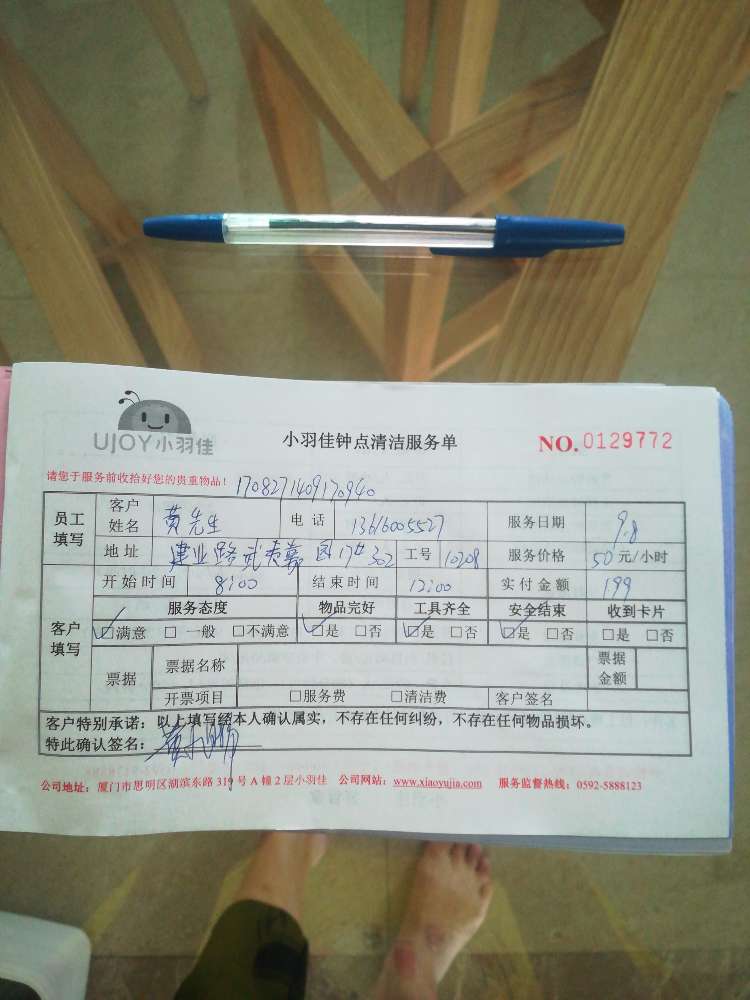 UJOY小羽佳
小羽佳钟点清洁服务单
NO.0129772
请您于服务前收拾好您的贵重物品!
1708271409170940
员工填写 客户姓名 黄先生 电话 13616005527 服务日期 9.8
地址 建业路武夷嘉园17# 302 工号 10308 服务价格 50元/小时
客户填写 开始时间 8:00 结束时间 12:00 实付金额 199
服务态度 物品完好 工具齐全 安全结束 收到卡片
☑满意 □一般 □不满意 ☑是 □否 ☑是 □否 ☑是 □否 □是 □否
票据 票据名称 票据金额
开票项目 □服务费 □清洁费 客户签名
客户特别承诺:以上填写经本人确认属实,不存在任何纠纷,不存在任何物品损坏。
特此确认签名:
公司地址:厦门市思明区湖滨东路319号A幢2层小羽佳 公司网站:www.xiaoyujia.com 服务监督热线:0592-5888123